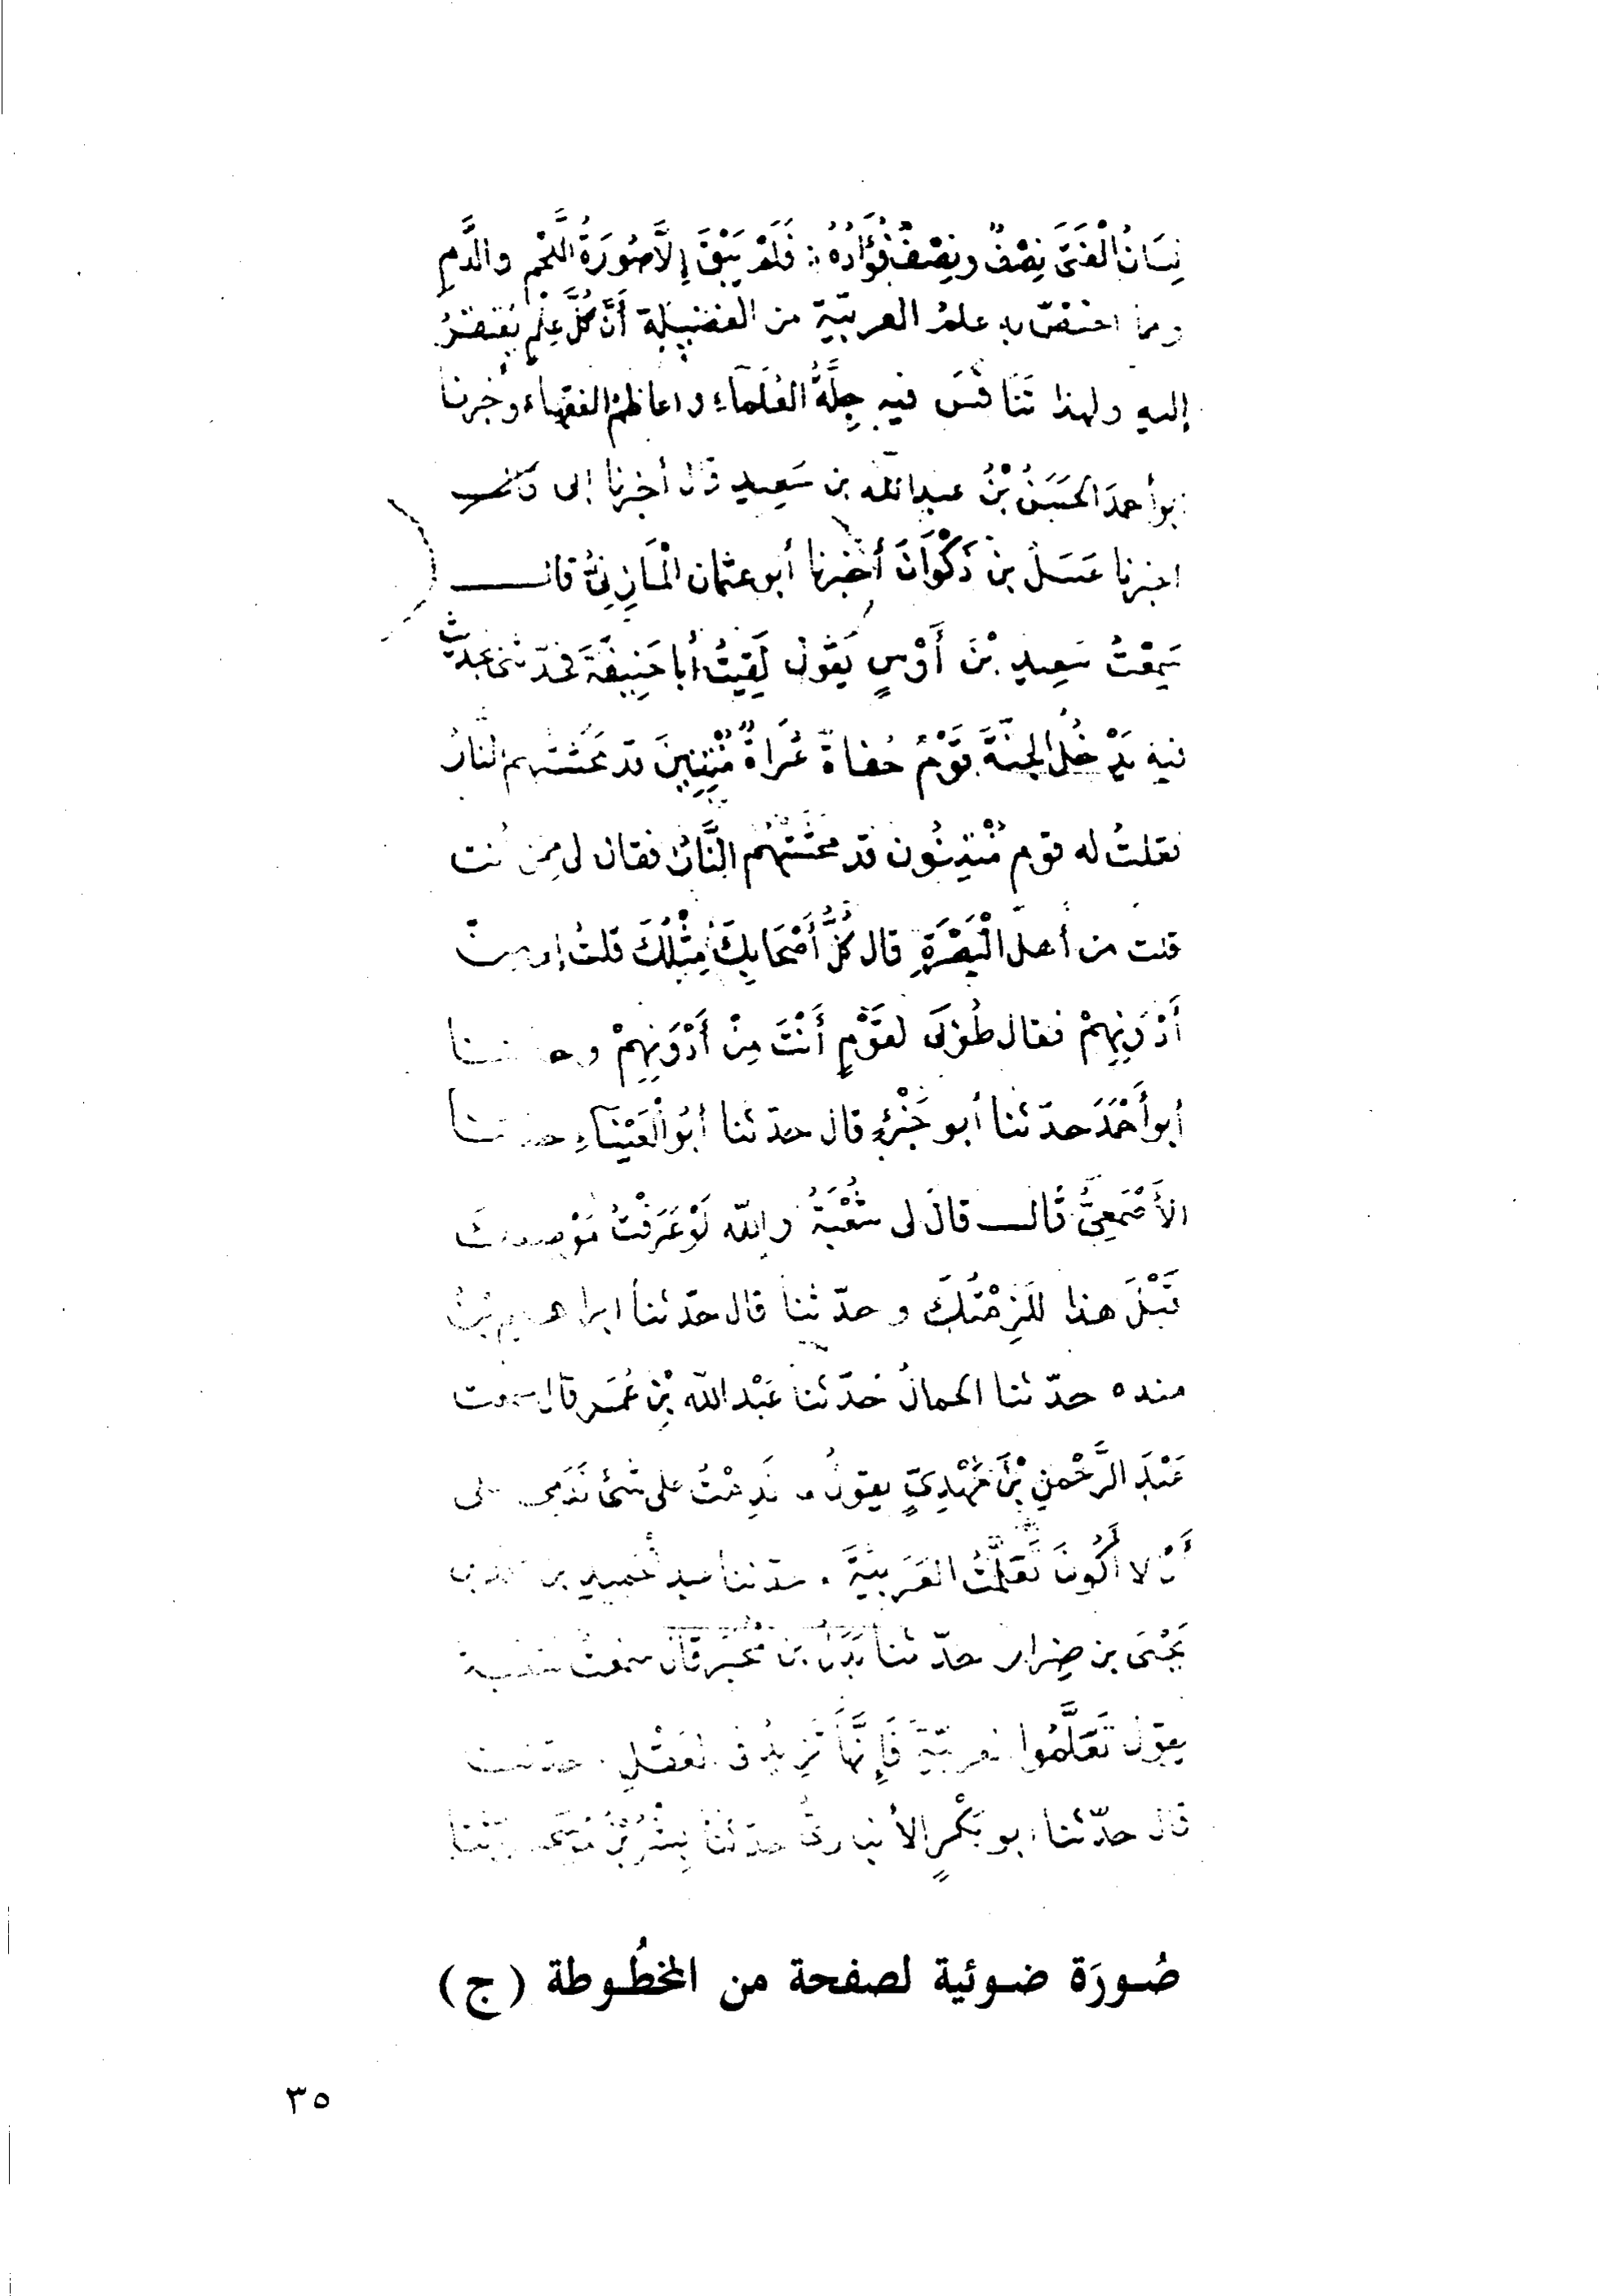 لِسَانُ الْفَتَى نِصْفٌ ونِصْفٌ فُؤَادُهُ ∴ فَلَمْ يَبْقَ إِلَّا صُورَةُ اللَّحْمِ والدَّمِ
ومما اختصّ به علمُ العربيّة من الفضيلة أَنَّ كُلَّ عِلْمٍ يَفتقرُ
إليه ولهذا تَنَافَسَ فيه جِلَّةُ العُلَمَاءِ واعاظمُ الفقهاء وأخبرنا
أبو أحمدَ الحَسَنُ بْنُ عبد الله بن سَعِيد قال أخبرنا
اخبرنا عَسَلُ بن ذَكْوَانَ أخبرنا أبو عثمان الْمَازِنِيُّ قال
سَمِعْتُ سَعيد بْنَ أَوْسٍ يَقُول لَقِيتُ أبا حَنِيفَةَ فحدّثنى بحديث
فيه يَدْخُلُ الجنَّةَ قَوْمٌ حُفاةٌ عُرَاةٌ مُنْتِنِينَ قد مَحَشَتْهم النارُ
فقلتُ له قوم مُنْتِنُون قد مَحَشَتْهُم النَّارُ فقال لى مِمن كنت
قلت من أهل الْبَصْرَةِ قال كُلُّ أَصْحَابِكَ مِثْلُكَ قلتُ
أَدْوَنِهِمْ فقال طُوبَى لقَوْمٍ أَنْتَ مِنْ أَدْوَنِهِمْ وحدثنا
أبو أَحْمَدَ حدّثنا أبو قال حدّثنا أبُو الْعَيْنَاءِ حدثنا
الأَصْمَعِيُّ قال قال لى شُعْبَةُ والله لَوْ عَرَفْتُ مَوْضِعَكَ
قَبْلَ هذا لَلَزِمْتُكَ وحدّثنا قال حدّثنا ابراهيم بْنُ
منده حدّثنا الحمالُ حَدّثنا عَبْد الله بْن عُمَر قال سمعت
عَبْدَ الرَّحْمنِ بْنَ مَهْدِيٍّ يقولُ ما نَدِمْتُ على شئ نَدَمِى على
أَنْ لا أَكُونَ تَعَلَّمْتُ العَرَبِيَّةَ . حدّثنا عبد
يَحْيَى بن ضِرار حدّثنا بَدَلُ بن مُحَبَّر قال سمعتُ شعبة
يقول تَعَلَّمُوا العربيّةَ فَإِنَّهَا تَزِيدُ فى العَقْلِ . حدّثنا
قال حدّثنا أبو بَكْرٍ الأنبارىُّ حدّثنا بِشْرُ بْنُ
صُورَة ضوئية لصفحة من المخطُوطة (ج)
٣٥